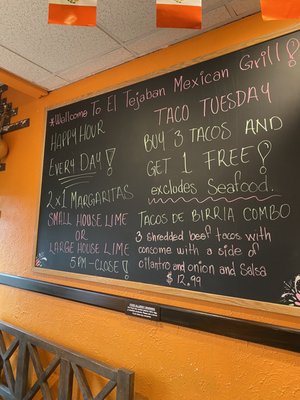 *Welcome To El Tejaban Mexican Grill!
HAPPY HOUR
EVERY DAY!
2x1 MARGARITAS
SMALL HOUSE LIME
OR
LARGE HOUSE LIME
5PM-CLOSE!
TACO TUESDAY
BUY 3 TACOS AND
GET 1 FREE!
excludes Seafood.
TACOS DE BIRRIA COMBO
3 shredded beef tacos with
consome with a side of
cilantro and onion and salsa
$12.99